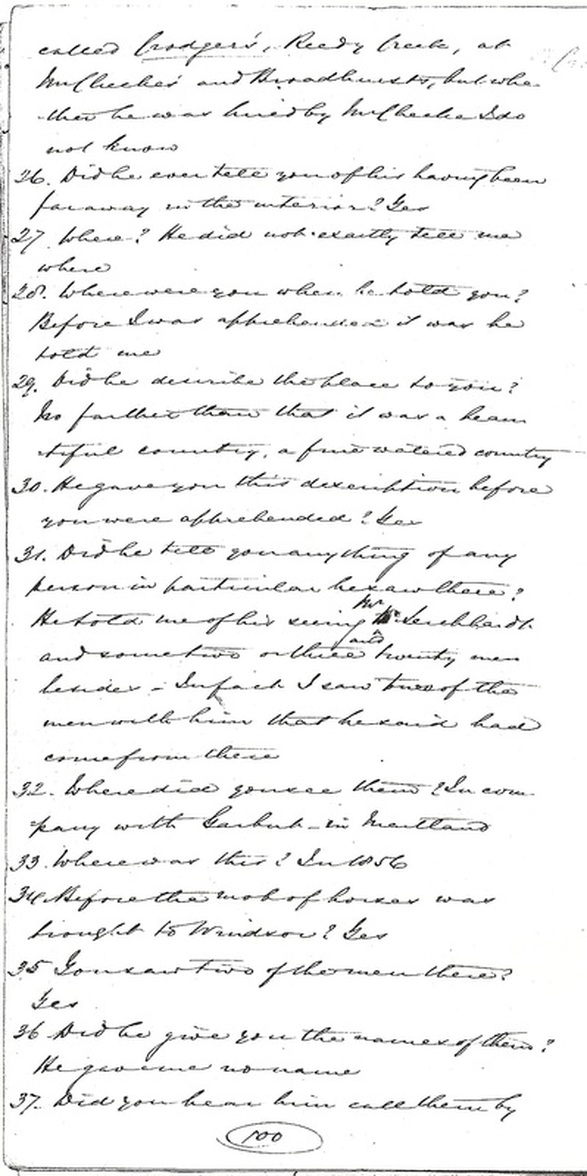 called Crodger's, Reedy Creek, at
McCheeke's and Broadhursts, but whe-
ther he was hired by McCheeke I do
not know
26. Did he ever tell you of his having been
far away in the interior? Yes
27 Where? He did not exactly tell me
where
28. Where were you when he told you?
Before I was apprehended it was he
told me
29. Did he describe the place to you?
No farther than that it was a beau
tiful country, a fine watered country
30. He gave you this description before
you were apprehended? Yes
31. Did he tell you anything of any
person in particular he saw there?
He told me of his seeing Mr Leichhardt
and some two or three and twenty men
besides - In fact I saw two of the
men with him that he said had
come from there
32. Where did you see them? In com-
pany with Garbut - in Meitland
33. When was this? In 1856
34 Before the mob of horses was
brought to Windsor? Yes
35 You saw two of the men there?
Yes
36 Did he give you the names of them?
He gave me no name
37. Did you hear him call them by
100